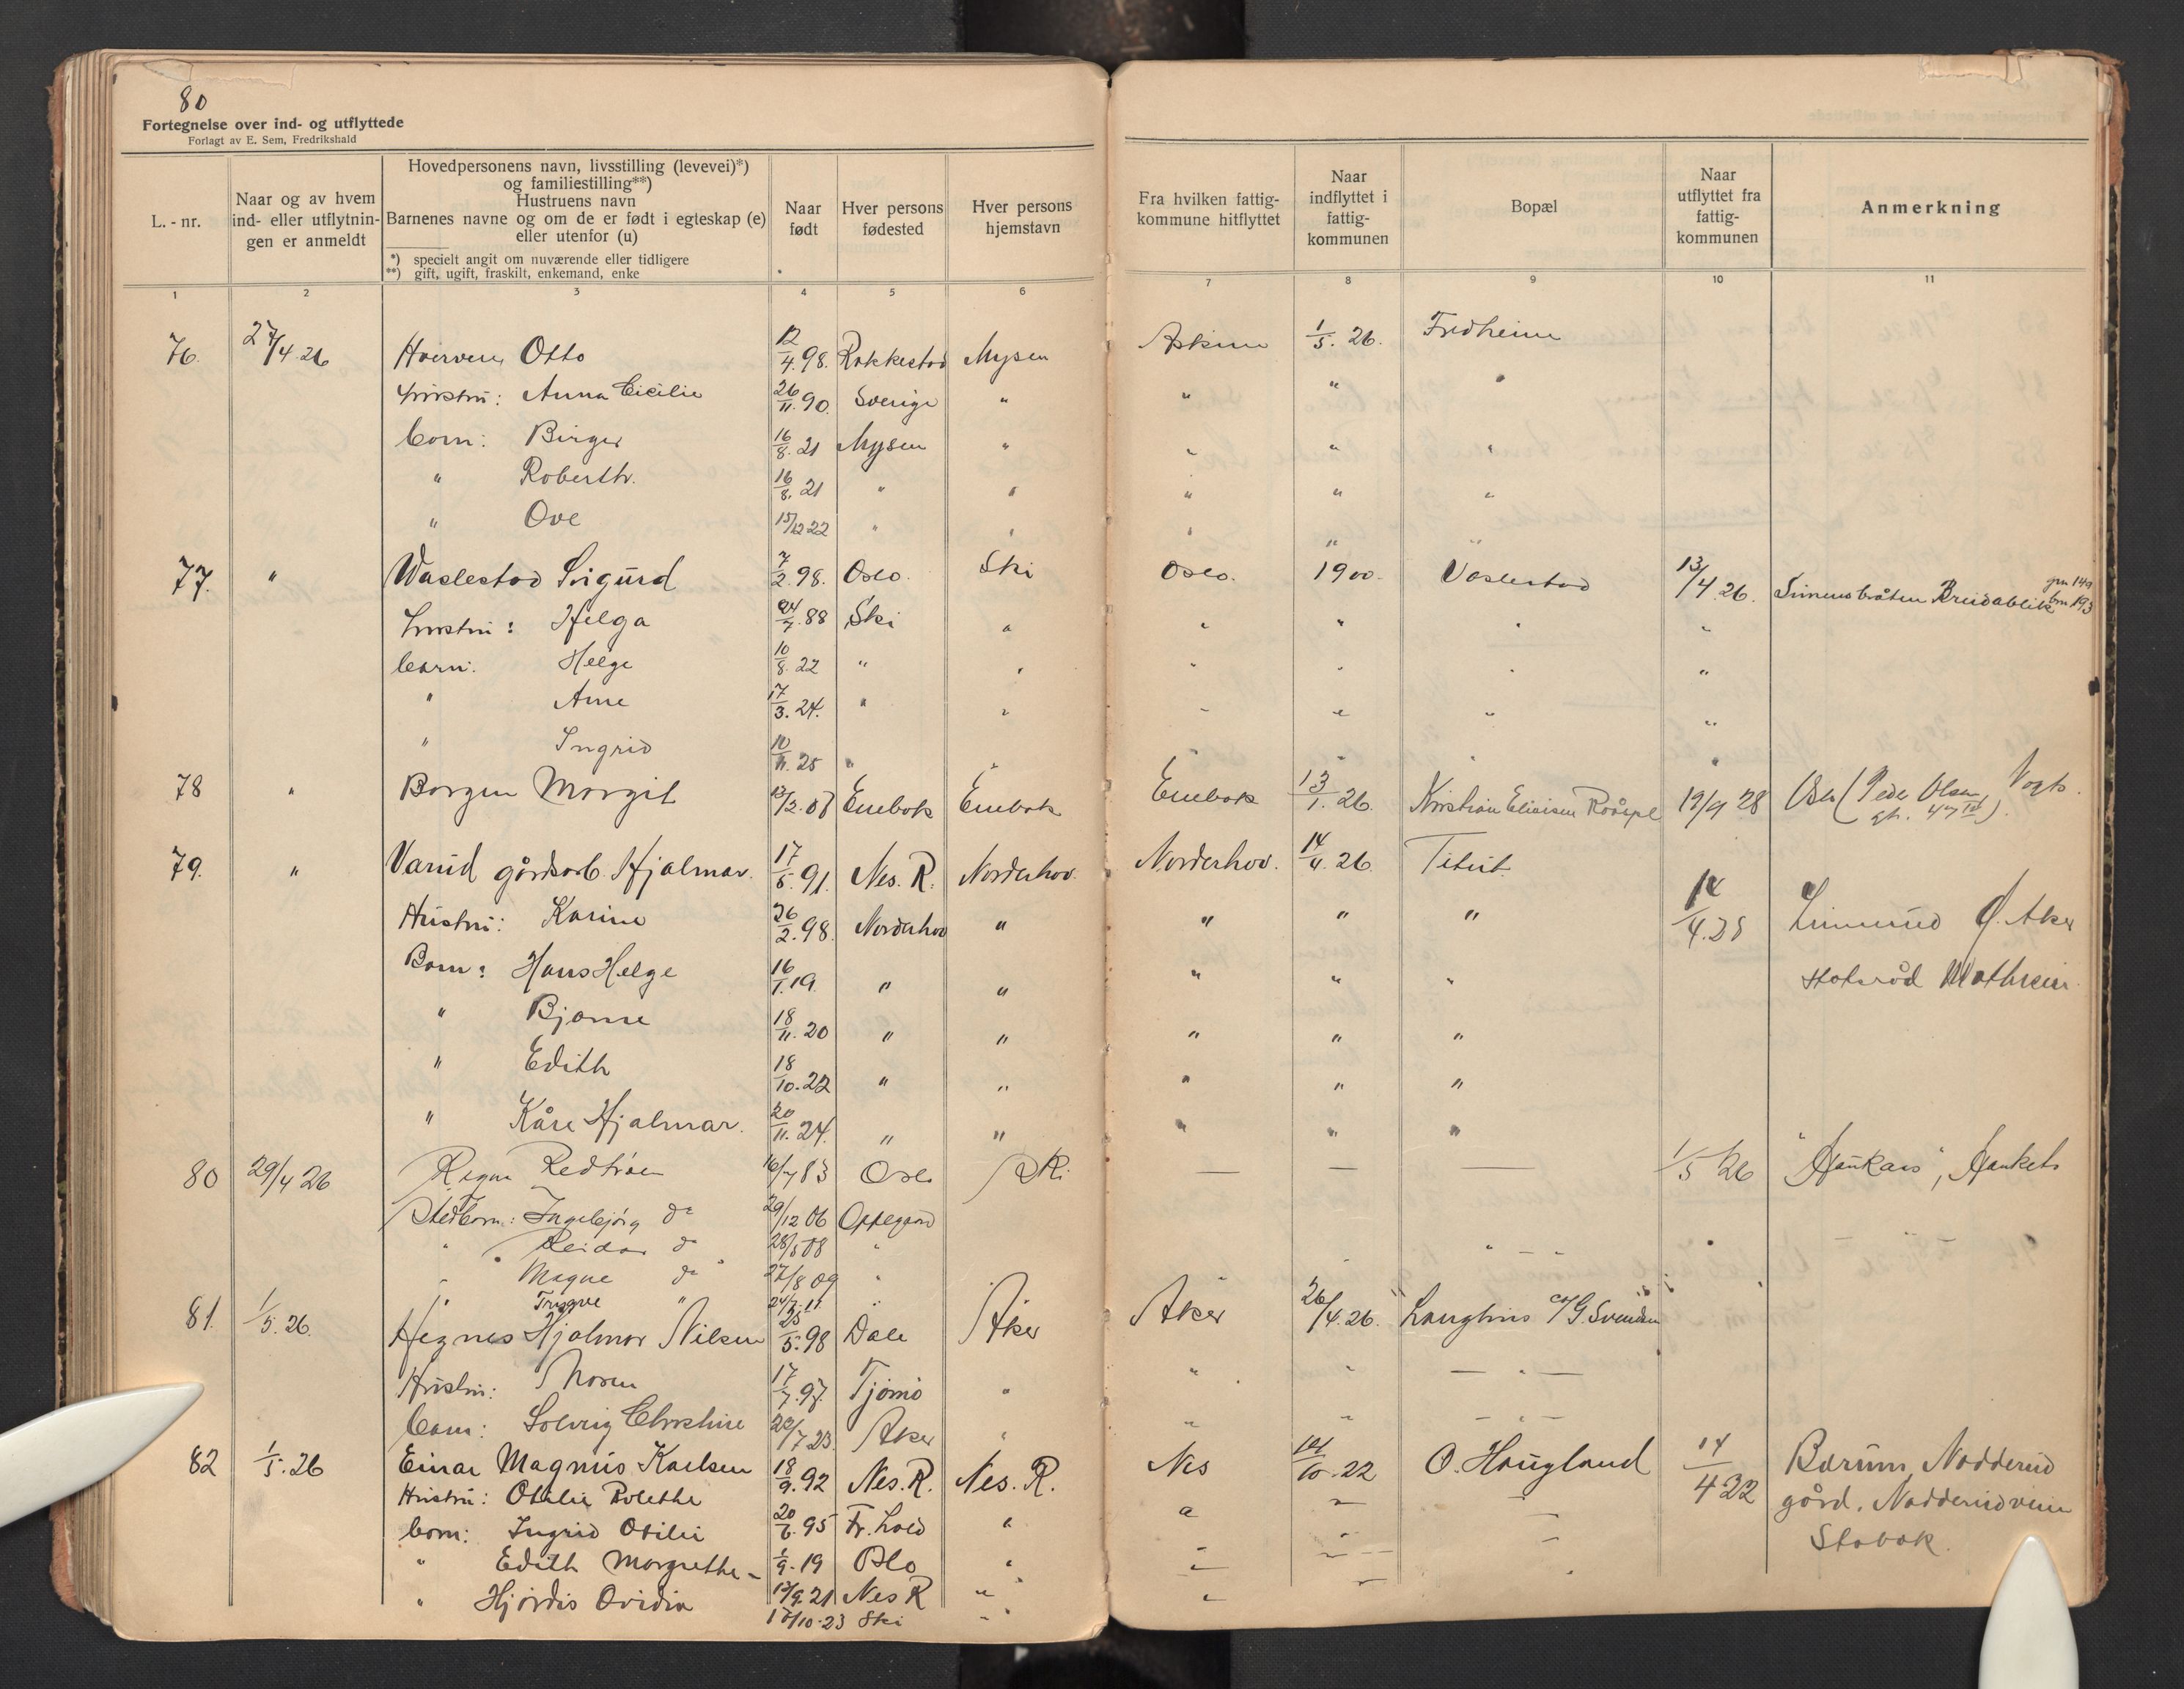 80
Fortegnelse over ind- og utflyttede
Forlagt av E. Sem, Fredrikshald
L. - nr. | Naar og av hvem ind- eller utflytnin- gen er anmeldt | Hovedpersonens navn, livsstilling (levevei)*) og familiestilling**) Hustruens navn Barnenes navne og om de er født i egteskap (e) eller utenfor (u) *) specielt angit om nuværende eller tidligere **) gift, ugift, fraskilt, enkemand, enke | Naar født | Hver persons fødested | Hver persons hjemstavn | Fra hvilken fattig- kommune hitflyttet | Naar indflyttet i fattig- kommunen | Bopæl | Naar utflyttet fra fattig- kommunen | Anmerkning
1 2 3 4 5 6 7 8 9 10 11
76. 27/4.26 Otto 12/4.98. Rakkestad Mysen Askim 1/5.26. Fredheim
Hustru: Anna Cicilie 26/11.90. Sverige " " " "
Barn: Birger 16/8.21 Mysen " " " "
" Roberth. 16/8.21 " " " " "
" Ove 15/12 22 " " " " "
77. " Waslestad Sigurd 7/2.98. Oslo. Ski Oslo. 1900. Vaslestad 13/4.26. Simensbråten Breidablik gn 149 bn 193
Hustru: Helga 24/7.88 Ski " " " " "
Barn: Helge 10/8.22 " " " " " "
" Arne 17/3.24. " " " " " "
" Ingrid 10/11.25 " " " " " "
78 " Borgen Margit 13/2.07 Enebak Enebak Enebak 13/1.26. Kristian Eliaisen 19/9 28 Oslo (Peder Olsen, Vogts. gt. 47 IV).
79. " Varud gårdsarb. Hjalmar. 17/5.91. Nes. R. Norderhov. Norderhov. 14/4.26. Titut.
Hustru: Karine 26/2.98. Norderhov " " " " 14/4.28 Linnerud Ø. Aker
Barn: Hans Helge 16/1.19. " " " " " Statsråd Mathisen
" Bjarne 18/11.20 " " " " "
" Edith 18/10.22 " " " " "
" Kåre Hjalmar. 20/11.24. " " " " "
80 29/4 26 Ragna Redtrøen 16/7 83 Oslo Ski — — — 1/5 26 "Haukaas", Hauketo
Stedbarn: Ingebjørg do 29/12 06 Oppegaard
" Reidar do 28/5 08 "
" Magne do 27/8 09 "
" Trygve " 24/2.11 "
81. 1/5.26. Hegnes Hjalmar Nilsen 25/5.98 Dale Aker Aker 26/4.26. Langhus c/o G. Svendsen
Hustru: Thora 17/7.97. Tjømø " " " — " —
Barn: Solveig Christine 20/7 23. Aker " " " — " —
82 1/5.26 Einar Magnus Karlsen 18/9.92 Nes. R. Nes. R. Nes 14/10.22 O. Haugland 14/4 22 Bærum, Nadderud
Hustru: Otilie Bolethe 20/6.95 Fr.hald " " " — gård. Nadderudveien
Barn: Ingrid Otilie 1/9.19 Oslo " Stabæk.
" Edith Margrethe 12/9.21 Nes R "
" Hjørdis Ovidia 17/10.23 Ski "